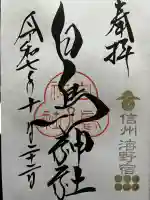 奉拝
白鳥神社
令和七年十一月二十二日
信州 海野宿